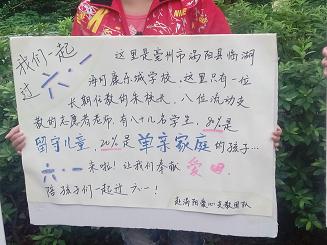 我们一起
过六·一
这里是亳州市涡阳县临湖
海司康乐城学校,这里只有一位
长期任教的朱校长,八位流动支
教的志愿者老师,有八十几名学生,80%是
留守儿童,20%是单亲家庭的孩子…
六·一来啦!让我们奉献爱心
陪孩子们一起过六一!
赴涡阳爱心支教团队